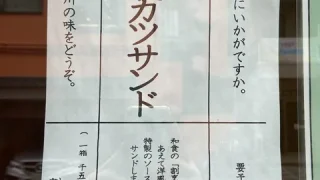 にいかがですか。
要予
カツサンド
和食の「割烹
あえて洋風
特製のソース
サンドしま
川の味をどうぞ。
(一箱 千五